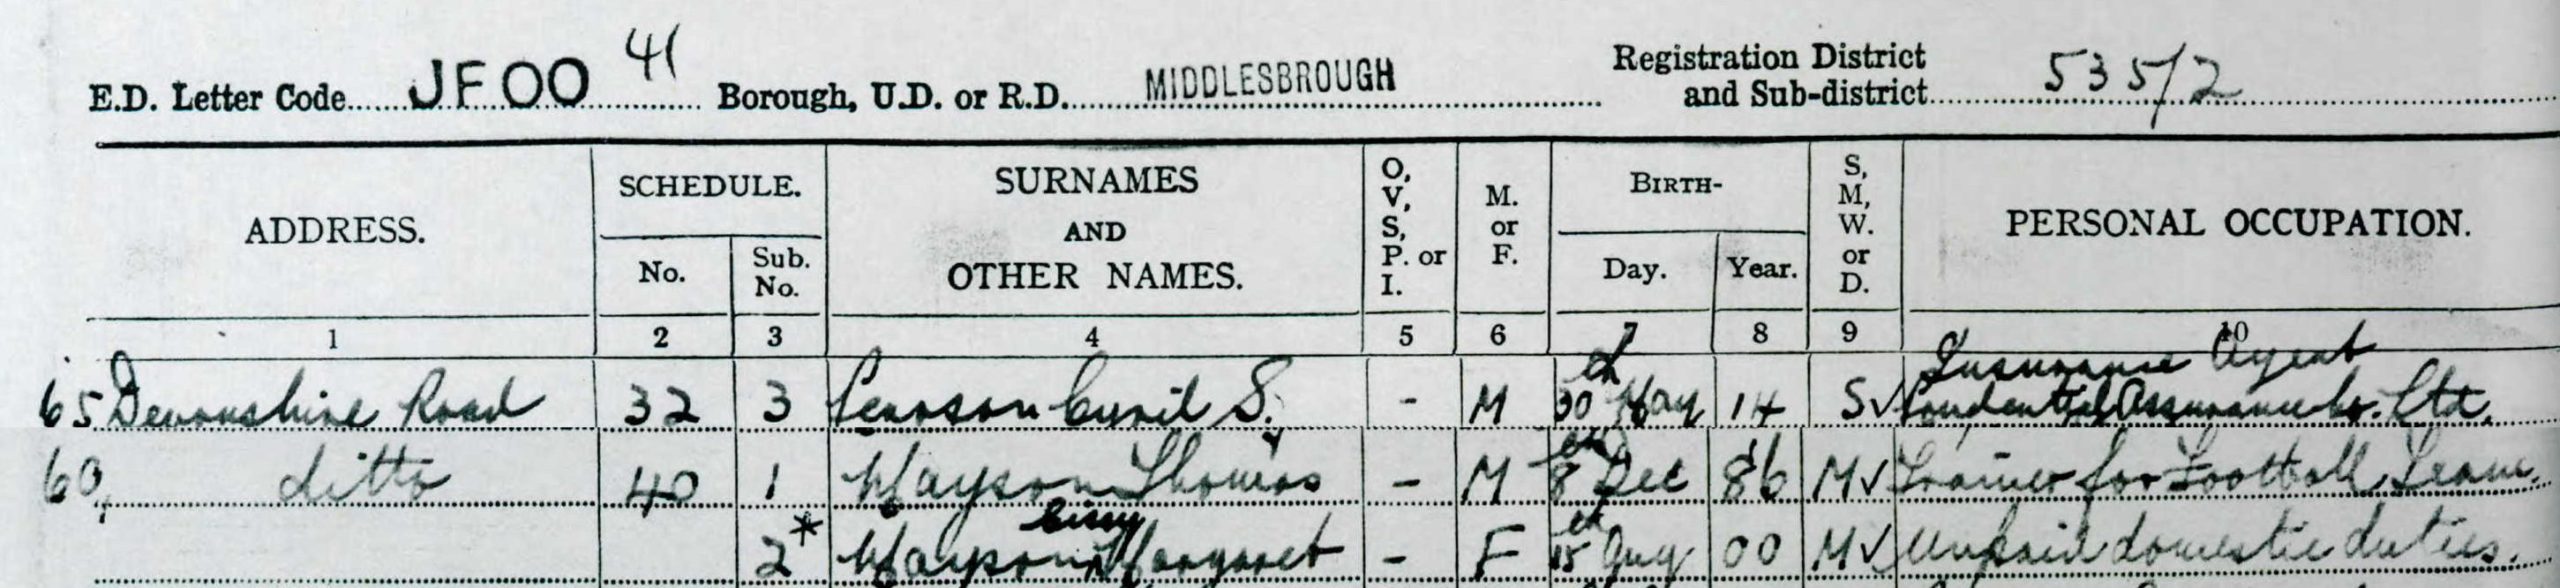 E.D. Letter Code JFOO 41 Borough, U.D. or R.D. MIDDLESBROUGH Registration District and Sub-district 535/2
ADDRESS. SCHEDULE. No. Sub. No. SURNAMES AND OTHER NAMES. O, V, S, P. or I. M. or F. BIRTH- Day. Year. S, M, W. or D. PERSONAL OCCUPATION.
1 2 3 4 5 6 7 8 9 10
65 Devonshire Road 32 3 Pearson Cyril S. - M 30th May 14 S ✓ Insurance Agent Prudential Assurance Co. Ltd.
ditto 40 1 Mayson Thomas - M 8th Dec 86 M ✓ Trainer for Football Team.
2* Mayson Cissy Margaret - F 15th Aug 00 M ✓ Unpaid domestic duties.